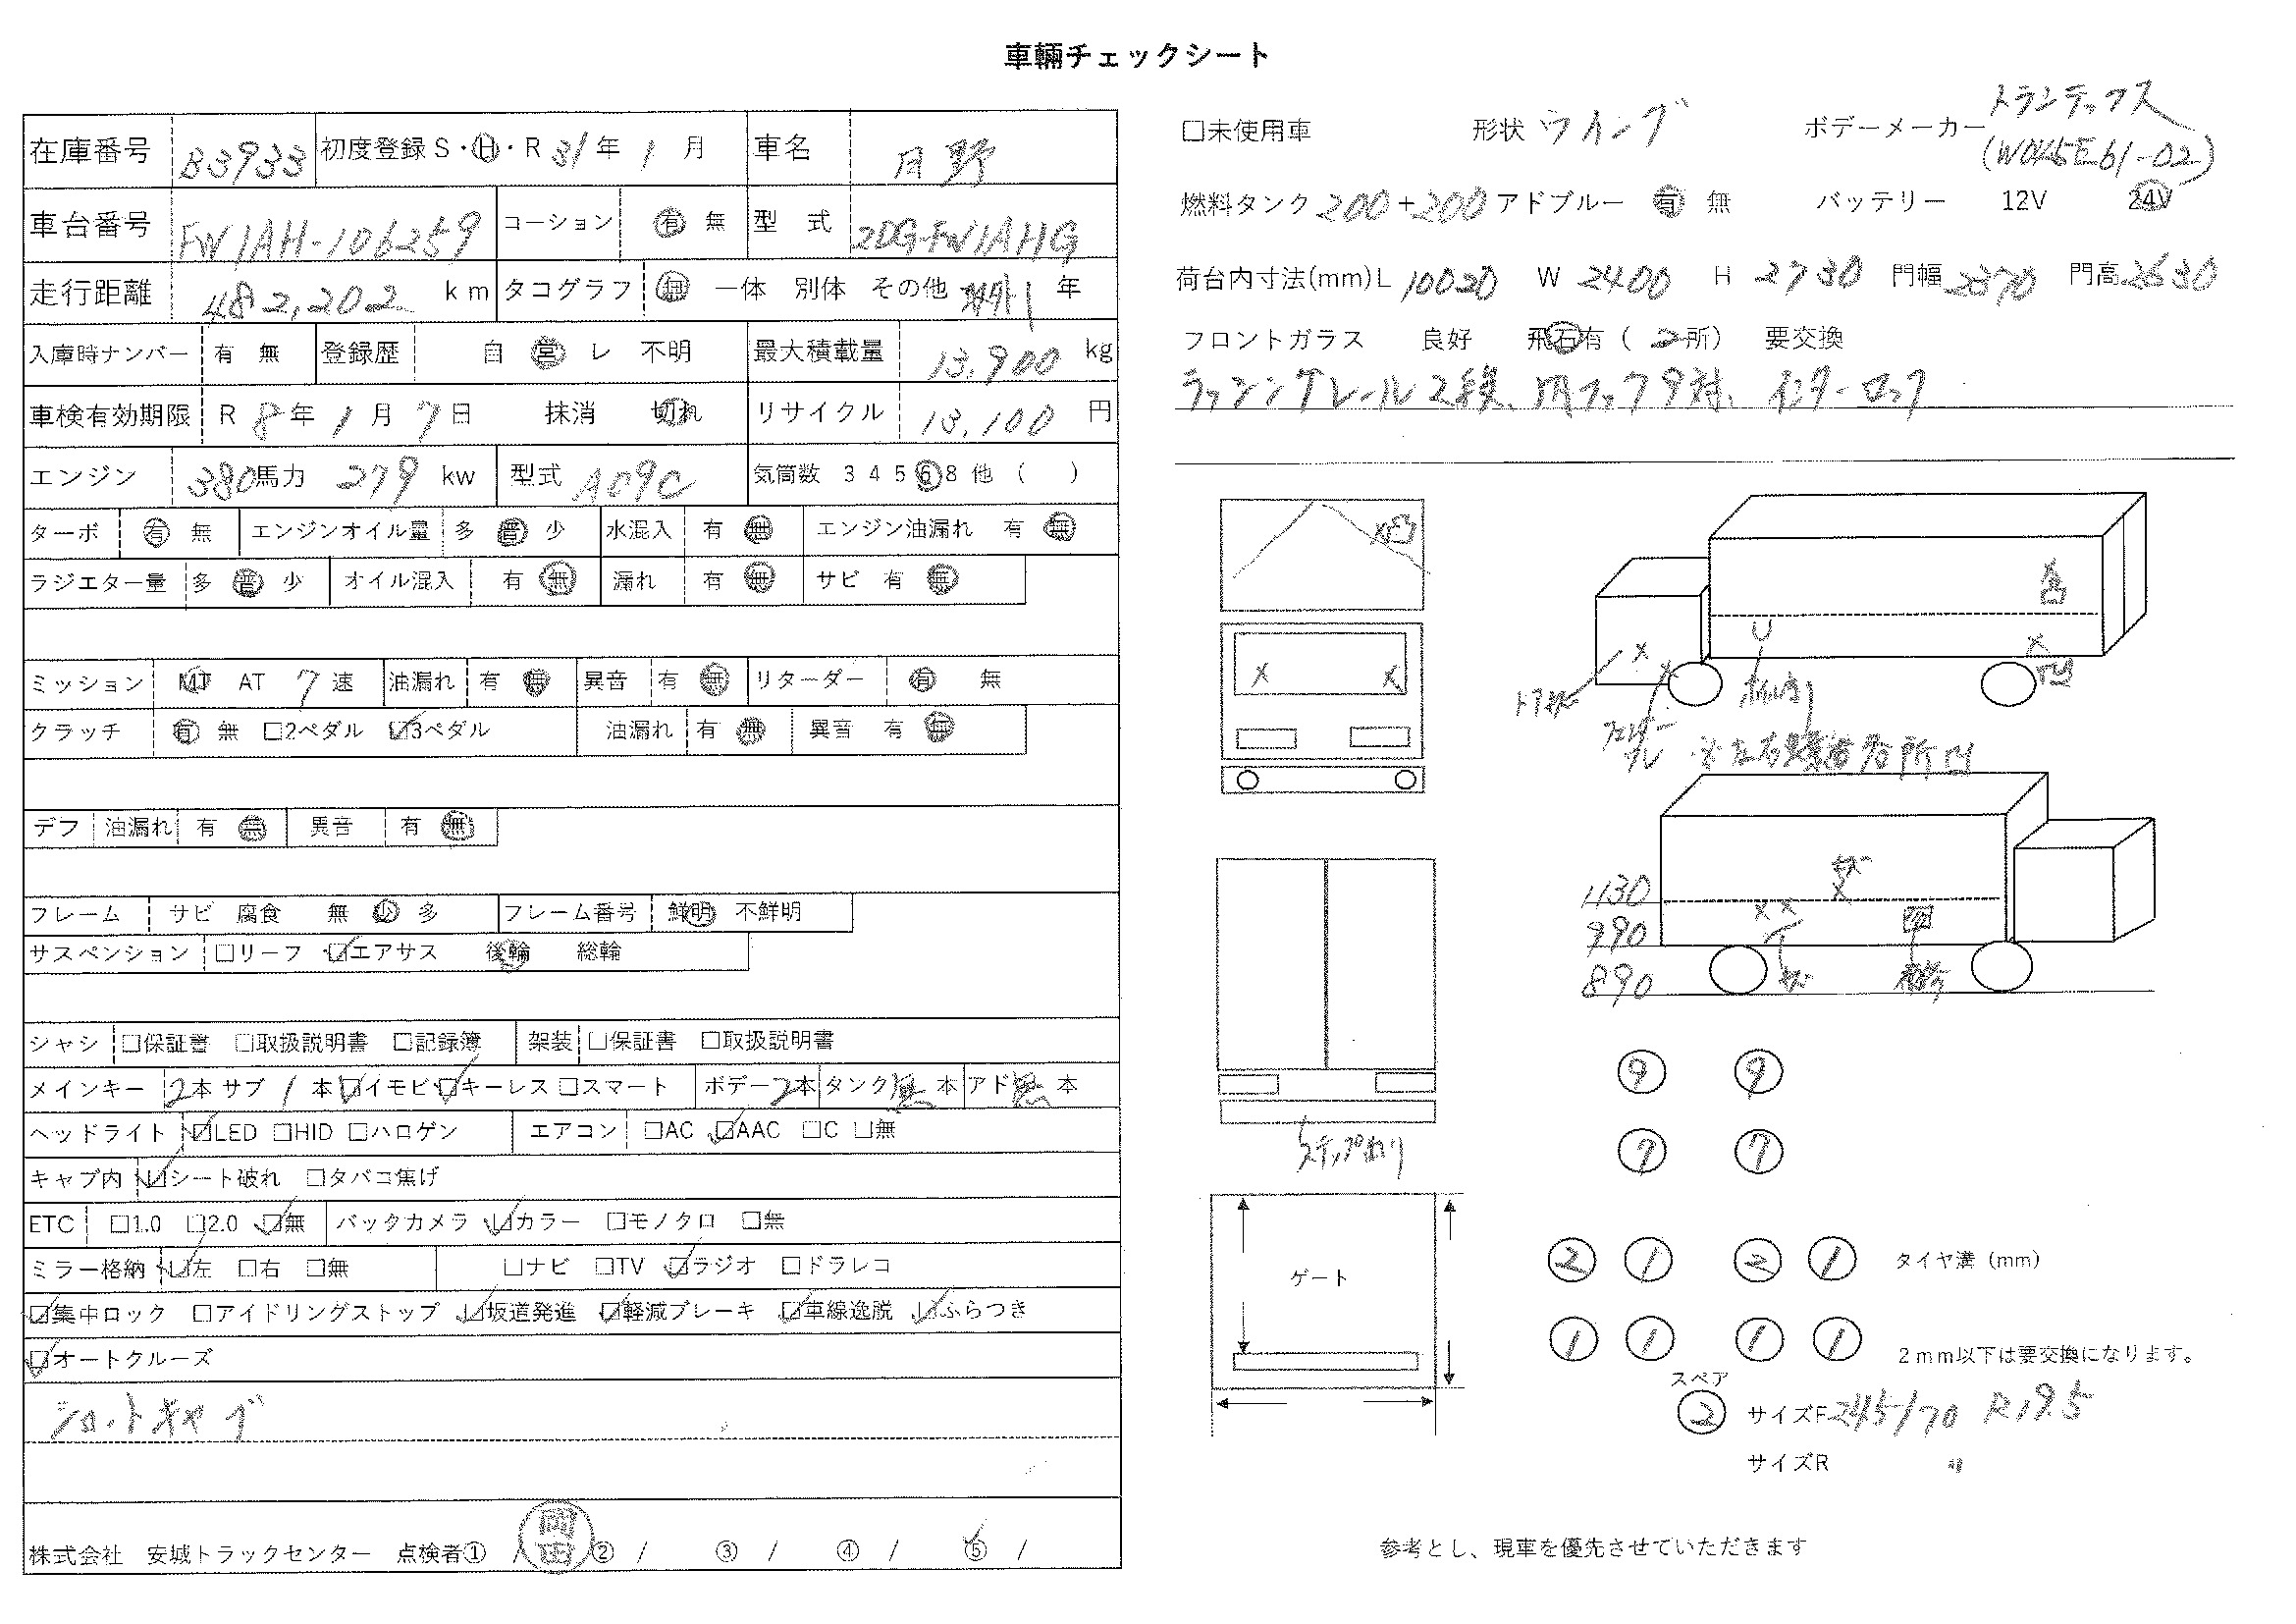 車輛チェックシート
在庫番号 B3933 初度登録 S・H・R 31年 1月 車名 日野
車台番号 FW1AH-106259 コーション 有 無 型 式 2DG-FW1AHG
走行距離 482,202 km タコグラフ 無 一体 別体 その他 年
入庫時ナンバー 有 無 登録歴 自 営 レ 不明 最大積載量 13,900 kg
車検有効期限 R 8年 1月 7日 抹消 切れ リサイクル 13,100 円
エンジン 380馬力 279 kw 型式 A09C 気筒数 3 4 5 6 8 他 ( )
ターボ 有 無 エンジンオイル量 多 普 少 水混入 有 無 エンジン油漏れ 有 無
ラジエター量 多 普 少 オイル混入 有 無 漏れ 有 無 サビ 有 無
ミッション MT AT 7速 油漏れ 有 無 異音 有 無 リターダー 有 無
クラッチ 有 無 □2ペダル ☑3ペダル 油漏れ 有 無 異音 有 無
デフ 油漏れ 有 無 異音 有 無
フレーム サビ 腐食 無 少 多 フレーム番号 鮮明 不鮮明
サスペンション □リーフ ☑エアサス 後輪 総輪
シャシ □保証書 □取扱説明書 □記録簿 架装 □保証書 □取扱説明書
メインキー 2本 サブ 1本 ☑イモビ ☑キーレス □スマート ボデー2本 タンク無本 アド無本
ヘッドライト ☑LED □HID □ハロゲン エアコン □AC ☑AAC □C □無
キャブ内 ☑シート破れ □タバコ焦げ
ETC □1.0 □2.0 ☑無 バックカメラ ☑カラー □モノクロ □無
ミラー格納 ☑左 □右 □無 □ナビ □TV ☑ラジオ □ドラレコ
☑集中ロック □アイドリングストップ ☑坂道発進 ☑軽減ブレーキ ☑車線逸脱 ☑ふらつき
☑オートクルーズ
ショートキャブ
株式会社 安城トラックセンター 点検者① / 岡田 ② / ③ / ④ / ⑤ /
□未使用車 形状 ウイング ボデーメーカー トランテックス
(W045E61-02)
燃料タンク 200+200 アドブルー 有 無 バッテリー 12V 24V
荷台内寸法(mm)L 10020 W 2400 H 2730 門幅 2370 門高 2630
フロントガラス 良好 飛石有 ( 2所) 要交換
ラッシングレール2段、床フック9対、インターロック
凹
凸
1130
990
890
ステップ曲り
ゲート
9 9
7 7
2 1 2 1 タイヤ溝 (mm)
1 1 1 1 2mm以下は要交換になります。
スペア
2 サイズF 245/70 R19.5
サイズR 〃
参考とし、現車を優先させていただきます